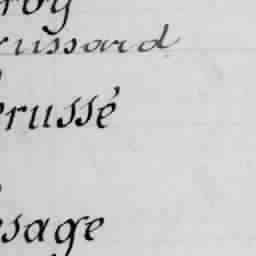 roy
russard
russé
sage